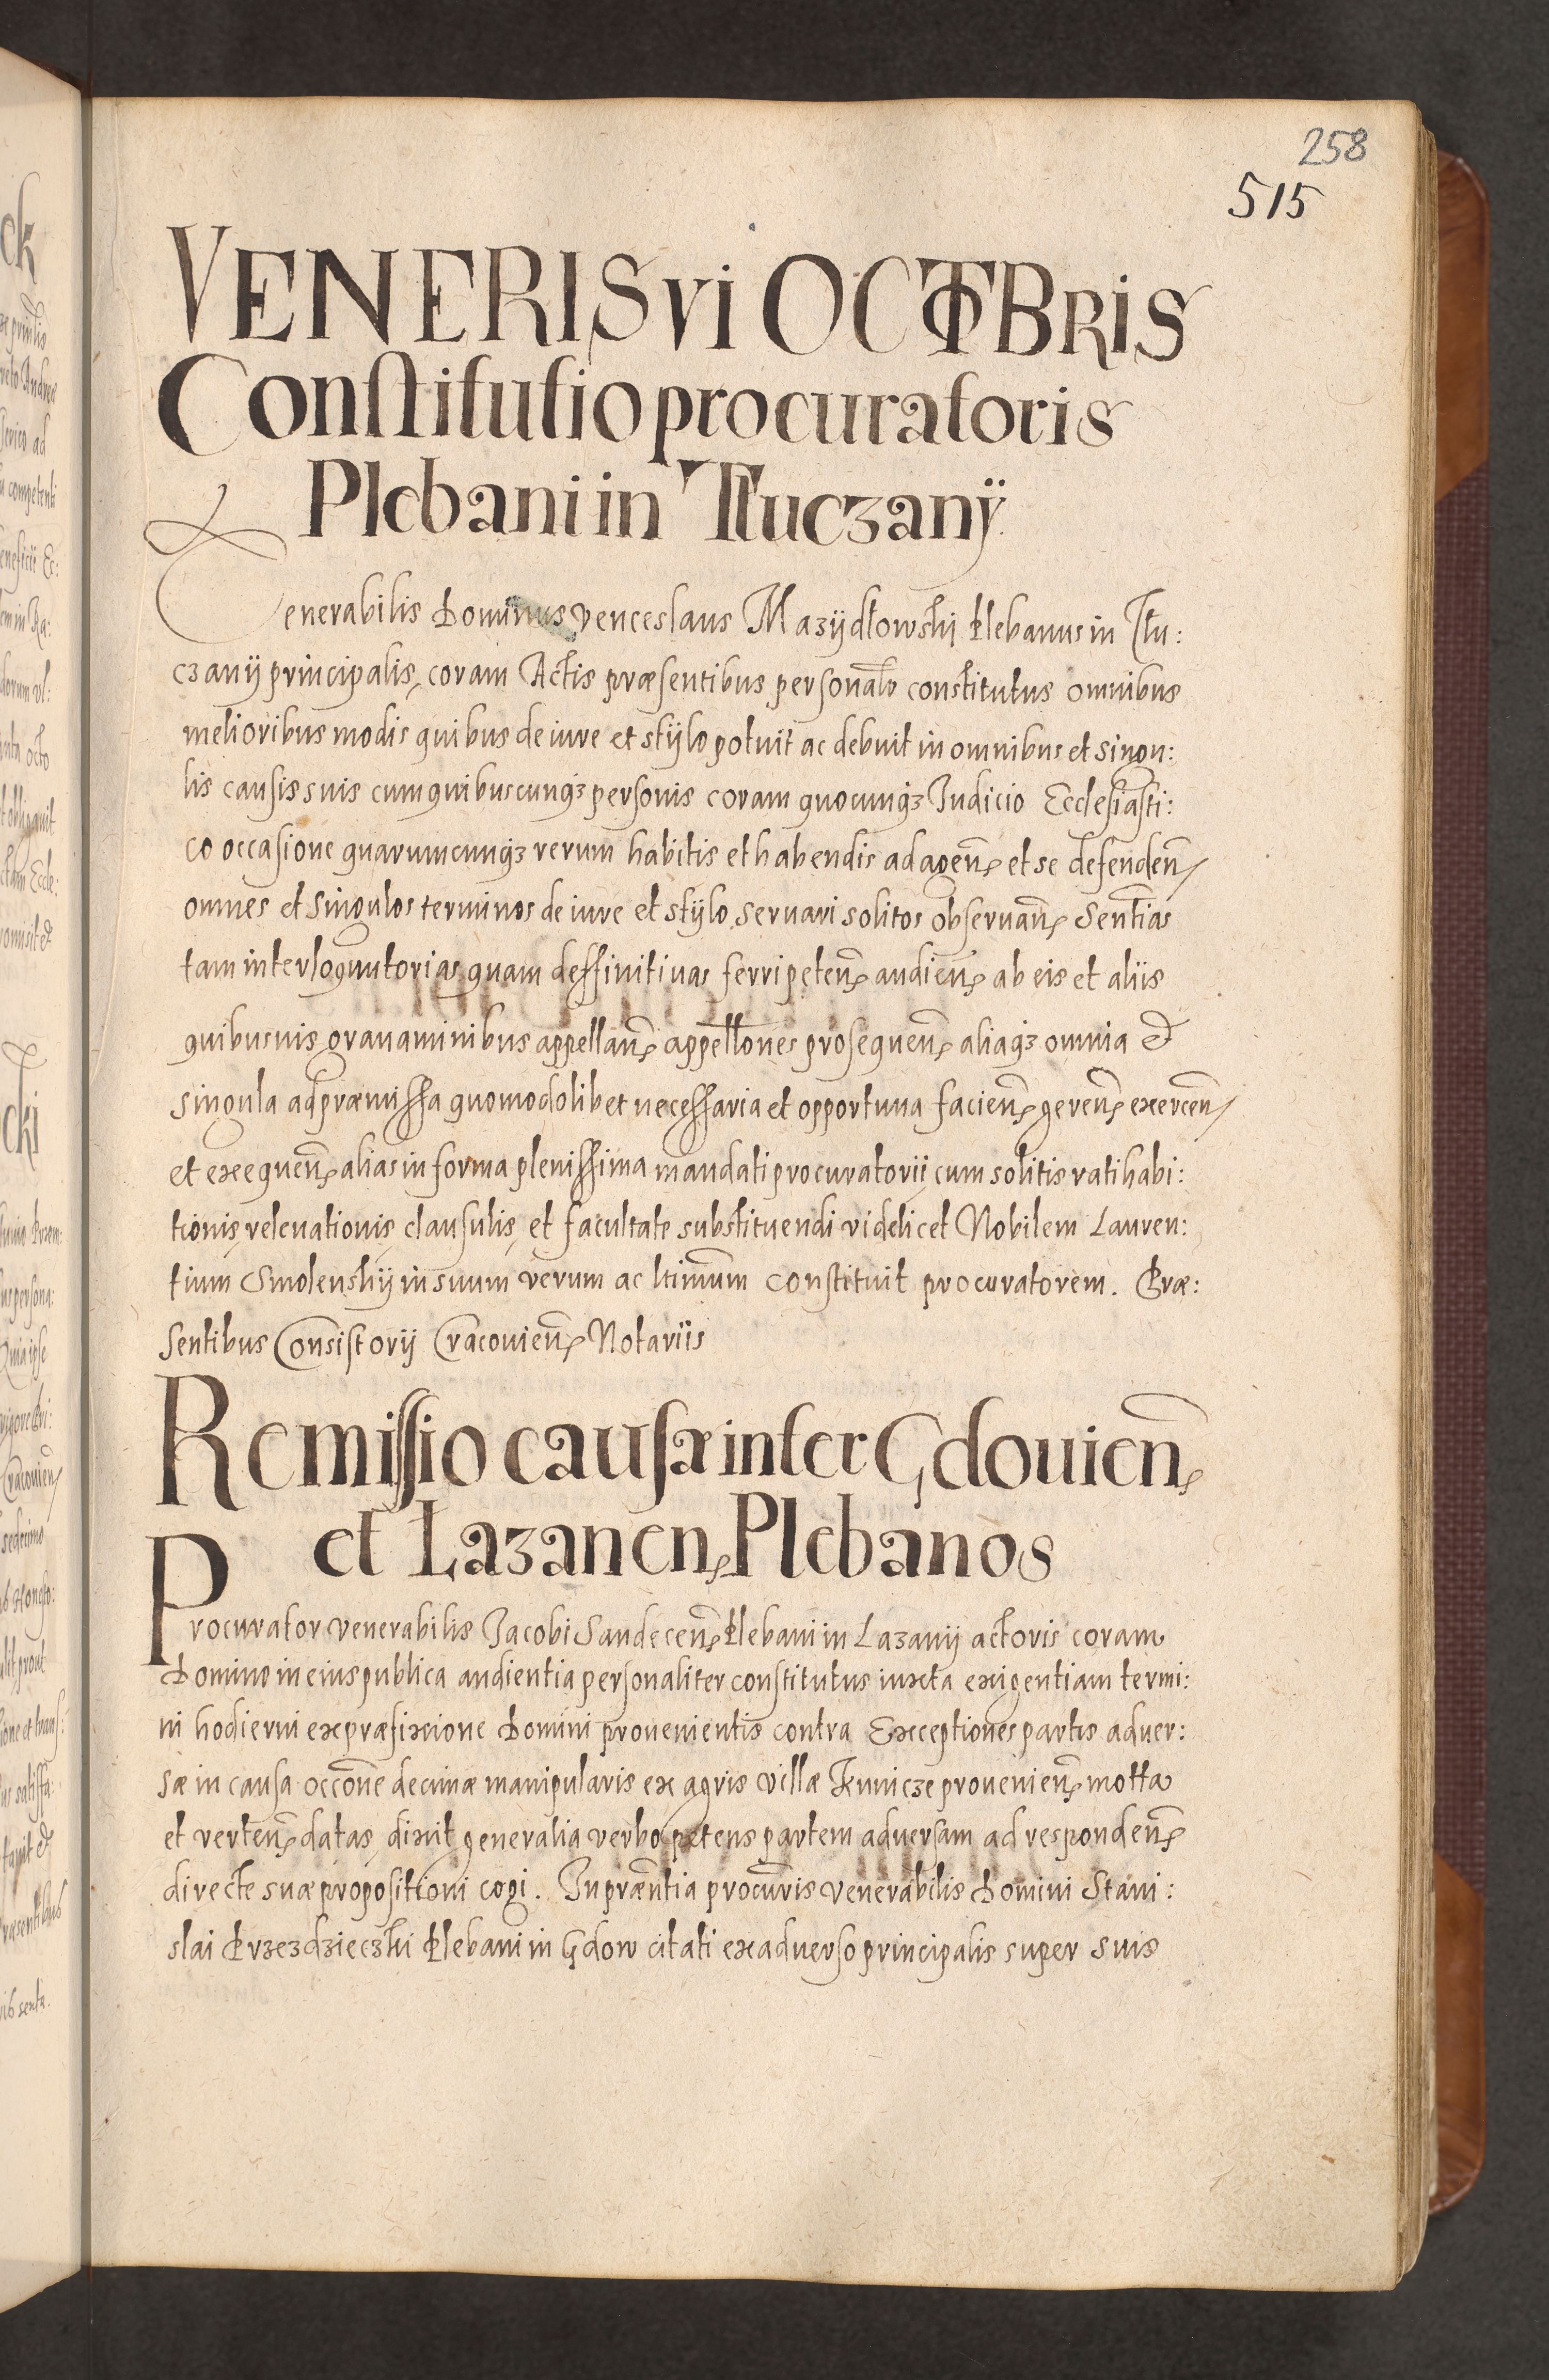 258
515
VENERIS VI OCTOBRIS
Constitutio procuratoris
Plebani in Tłuczanÿ
Venerabilis Dominus Venceslaus Mazÿdłowski Plebanus in Tłu:
czanÿ principalis, coram Actis præsentibus personalr̄ constitutus omnibus
melioribus modis quibus de iure et stÿlo potuit ac debuit in omnibus et singu:
lis causis suis cum quibuscunqȝ personis coram quocunqȝ Iudicio Ecclesiasti:
co occasione quarumcunqȝ rerum habitis et habendis ad agen̄ et se defenden̄
omnes et singulos terminos de iure et stÿlo servari solitos observan̄ Sentīas
tam interloquutorias quam deffinitivas ferri peten̄ audien̄ ab eis et aliis
quibusvis gravaminibus appellan̄ appellōnes prosequen̄ aliaqȝ omnia et
singula ad præmissa quomodolibet necessaria et opportuna facien̄ geren̄ exercen̄
et exequen̄ alias in forma plenissima mandati procuratorii cum solitis ratihabi:
tionis, relevationis clausulis, et facultate substituendi videlicet Nobilem Lauren:
tium Smolenskÿ in suum verum ac ltimūm constituit procuratorem. Præ:
sentibus Consistorÿ Cracovien̄ Notariis
Remissio causæ inter Gdovien̄
et Lazanen Plebanos
Procurator venerabilis Jacobi Sandecen̄ Plebani in Lazanÿ actoris coram
Domino in eius publica audientia personaliter constitutus iuxta exigentiam termi:
ni hodierni ex præfixione Domini provenientis contra Exceptiones partis adver:
sæ in causa occōne decimæ manipularis ex agris villæ Kunicze provenien̄ motta
et verten̄ datas, dixit generalia verbo petens partem adversam ad responden̄
directe suæ propositioni cogi. In præn̄tia procūris venerabilis Domini Stani:
slai Przezdzieczki Plebani in Gdow citati ex adverso principalis super suis